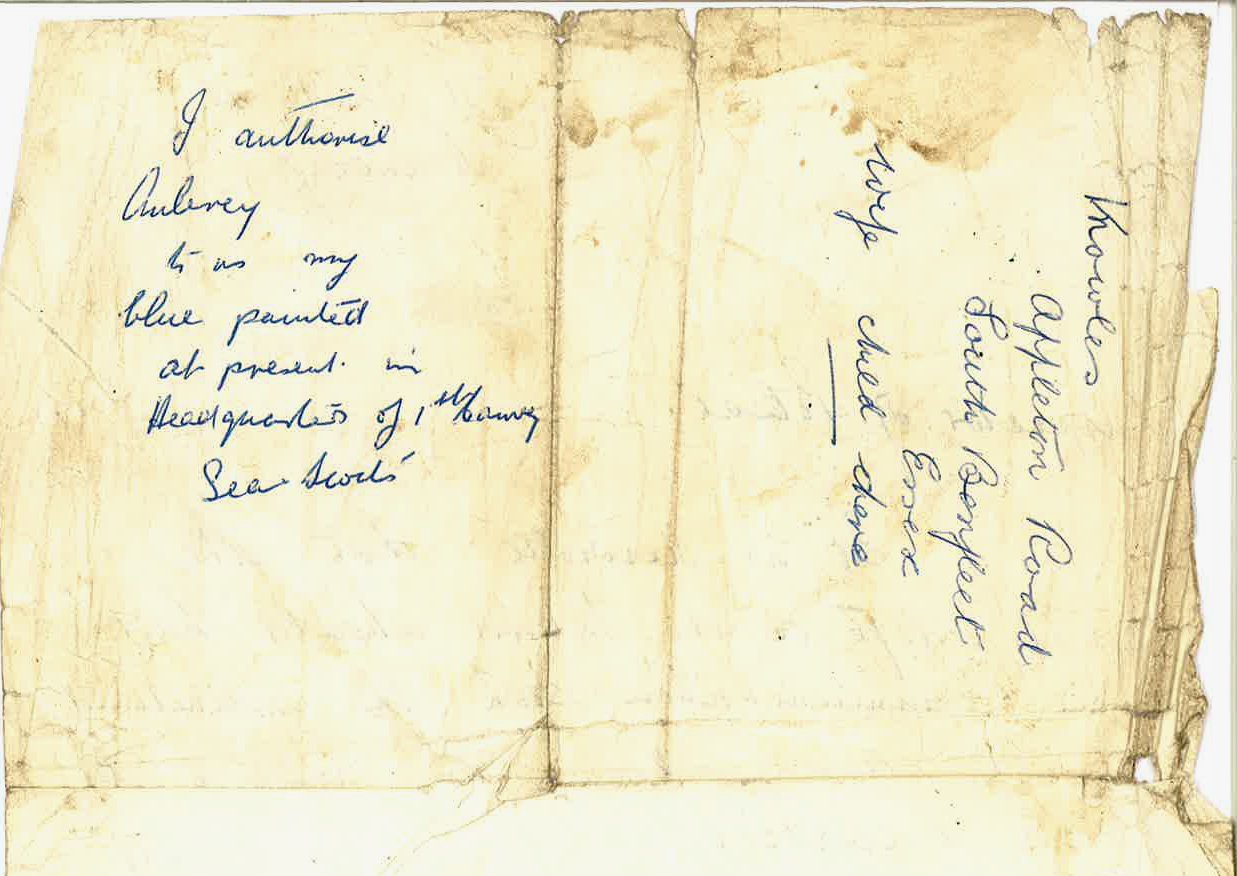 I authorise
Aubrey
to as my
blue painted
at present in
Headquarters of 1st Canvey
Sea Scouts
Knowles
Appleton Road
South Benfleet
Essex
wife child there